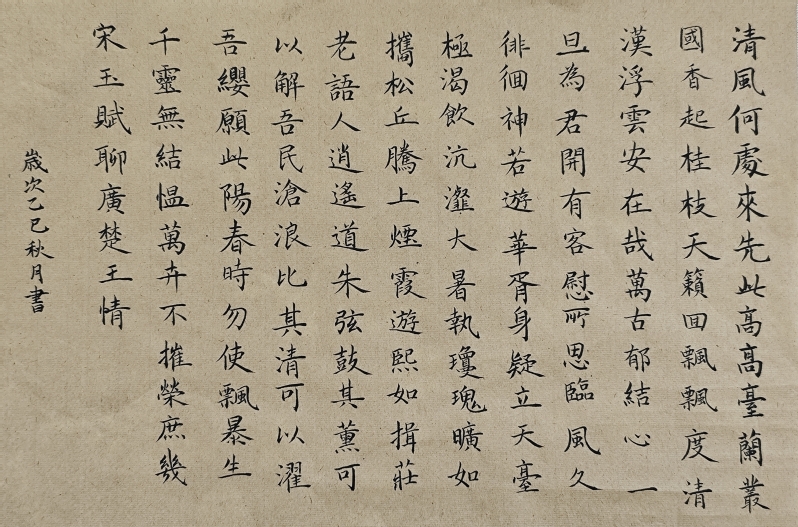 清風何處來先此高高臺蘭叢
國香起桂枝天籟回飄飄度清
漢浮雲安在哉萬古郁結心一
旦為君開有客慰所思臨風久
徘徊神若遊華胥身疑立天臺
極渴飲沆瀣大暑執瓊瑰曠如
攜松丘騰上煙霞遊熙如揖莊
老語人逍遙道朱弦鼓其薰可
以解吾民滄浪比其清可以濯
吾纓願此陽春時勿使飄暴生
千靈無結愠萬卉不摧榮庶幾
宋玉賦聊廣楚王情
歲次乙巳秋月書